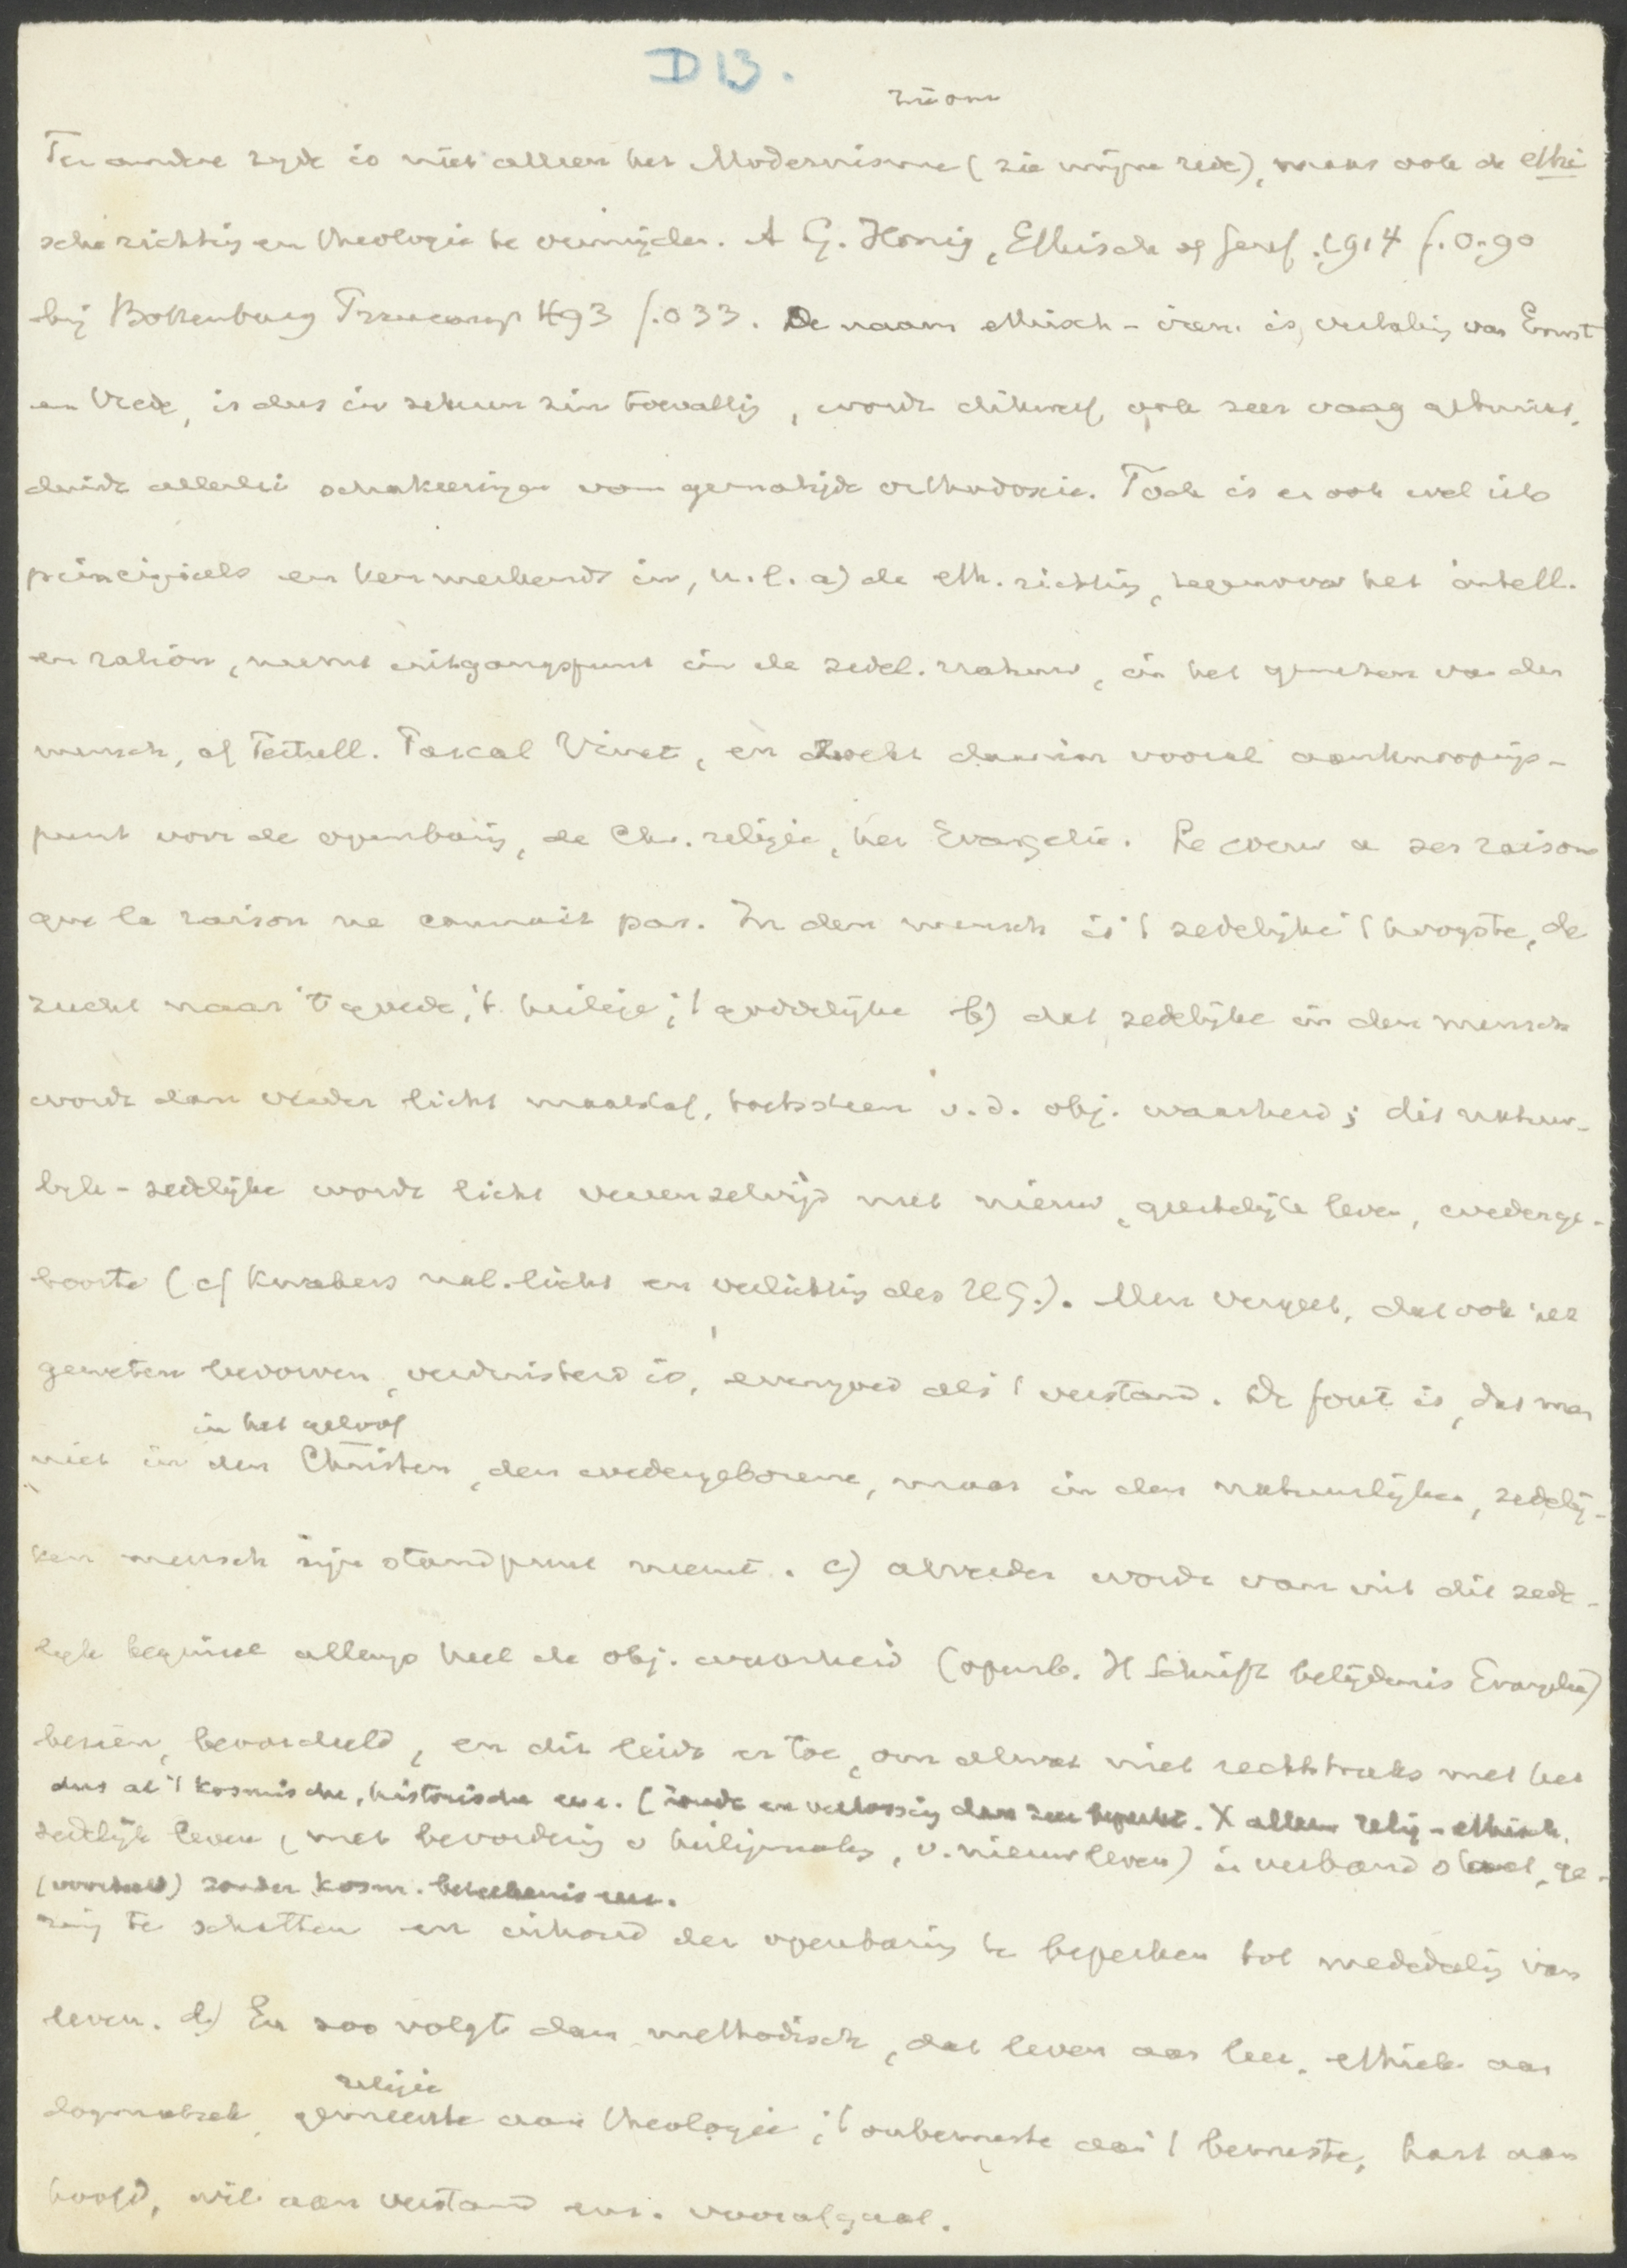 D 13.
Ter andere zyde is niet alleen het Modernisme (zie mijne rede), maar ook de ethi
sche richting en theologie te vermijden. A G. Honig, Ethisch of Geref. 1914 f. 0.90
bij Bottenburg f. 0 33. De naam ethisch-iren. is, vertaling van Ernst
en Vrede, is dus in zekeren zin toevallig, wordt dikwerf ook zeer vaag gebruikt,
duidt allerlei schakeeringen van gematigde orthodoxie. Toch is er ook wel iets
principieels en kenmerkends in, n.l. a) de eth. richting, tegenover het intell.
en ration, neemt uitgangspunt in de zedel. natuur, in het geweten van den
mensch, cf Tertull. Pascal Vinet, en zoekt daarin vooral aanknoopings-
punt voor de openbaring, de Chr. religie, het Evangelie. Le coeur a ses raisons
que la raison ne connait pas. In den mensch is 't zedelijke 't hoogste, de
zucht naar 't goede, 't heilige, 't goddelijke b) dat zedelijke in den mensch
wordt dan verder licht maatstaf, toetssteen v.d. obj. waarheid; dit natuur-
lyk-zedelijke wordt licht vereenzelvigd met nieuw, geestelijk leven, wederge-
boorte (cf Kwakers nat. licht en verlichting des H G.). Men vergeet, dat ook het
geweten bedorven, verduisterd is, evengoed als 't verstand. De fout is, dat men
in het geloof
niet in den Christen, den wedergeborene, maar in den natuurlijken, zedelij-
ken mensch zijn standpunt neemt. c) alverder wordt van uit dit zede-
lyk beginsel allengs heel de obj. waarheid (openb. H Schrift belijdenis Evangelie)
bezien, beoordeeld, en dit leidt er toe, om alwat niet rechtstreeks met het
dus al 't kosmische, historische enz. (zonde en verlossing dan zeer beperkt. X alleen relig-ethisch.
zedelijk leven (met bevordering v heiligmaking, v. nieuw leven) in verband staat, ge-
zonder kosm. beteekenis enz.
ring te schatten en inhoud der openbaring te beperken tot mededeeling van
leven. d) En zoo volgt dan methodisch, dat leven aan leer, ethiek aan
religie
dogmatiek, gemeente aan theologie, 't onbewuste aan 't bewuste, hart aan
hoofd, wil aan verstand enz. voorafgaat.